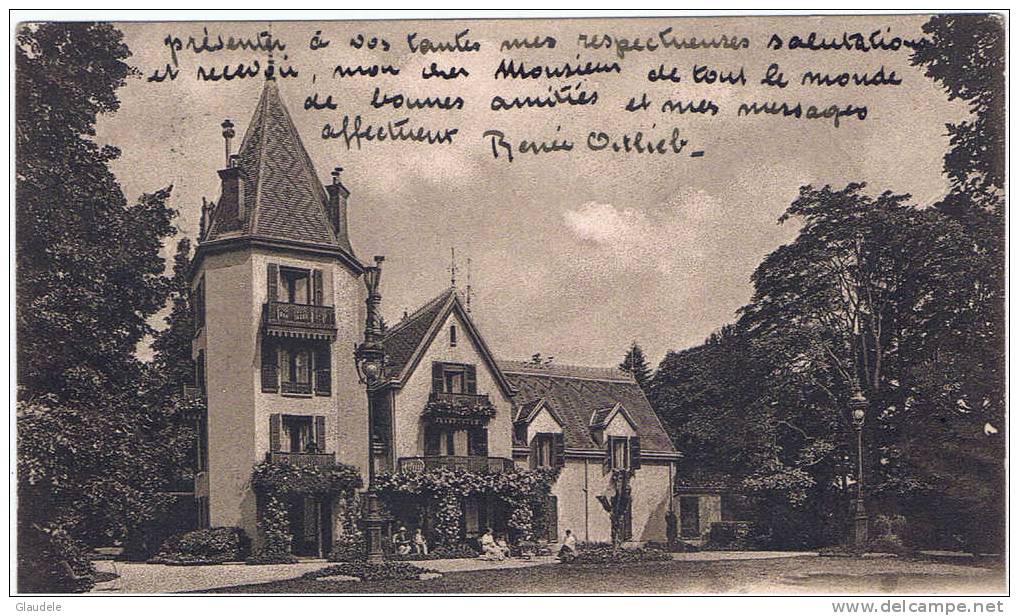 présenter à vos tantes mes respectueuses salutations
et recevoir, mon cher Monsieur de tout le monde
de bonnes amitiés et mes messages
affectueux Renée Ortlieb_
© Glaudele
www.delcampe.net